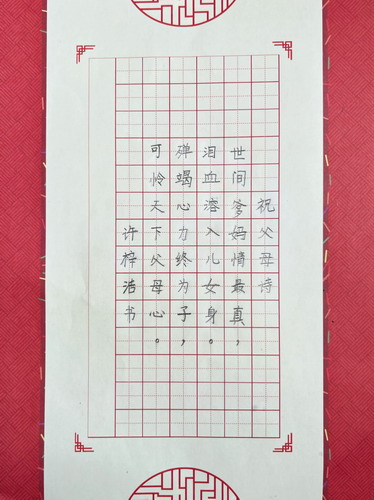 祝父母诗
世间爹妈情最真，
泪血溶入儿女身。
殚竭心力终为子，
可怜天下父母心。
许梓洁书